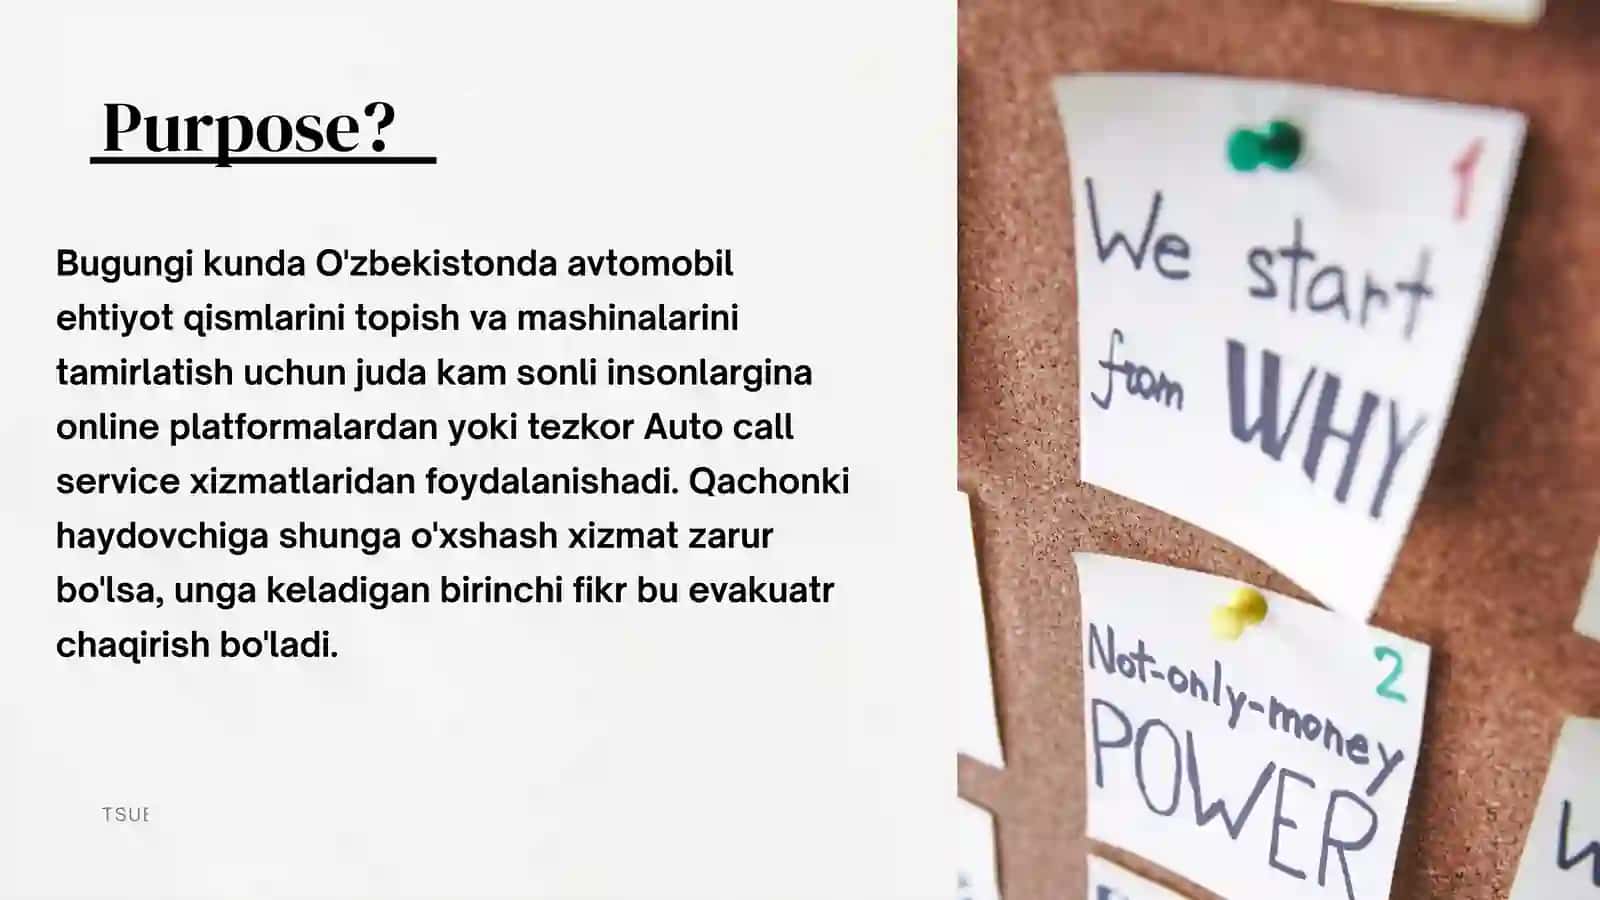 Purpose?
Bugungi kunda O'zbekistonda avtomobil
ehtiyot qismlarini topish va mashinalarini
tamirlatish uchun juda kam sonli insonlargina
online platformalardan yoki tezkor Auto call
service xizmatlaridan foydalanishadi. Qachonki
haydovchiga shunga o'xshash xizmat zarur
bo'lsa, unga keladigan birinchi fikr bu evakuatr
chaqirish bo'ladi.
1
We start
from WHY
2
Not-only-money
POWER